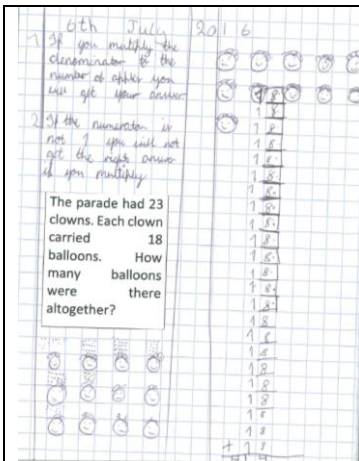 6th July 2016
1 If you multiply the
denominator by the
number of apples you
will get your answer
2 If the numerator is
not 1 you will not
get the right answer
if you multiply
The parade had 23
clowns. Each clown
carried 18
balloons. How
many balloons
were there
altogether?
18
18
18
18
18
18
18
18
18
18
18
18
18
18
18
18
18
18
18
18
18
18
+ 18
414